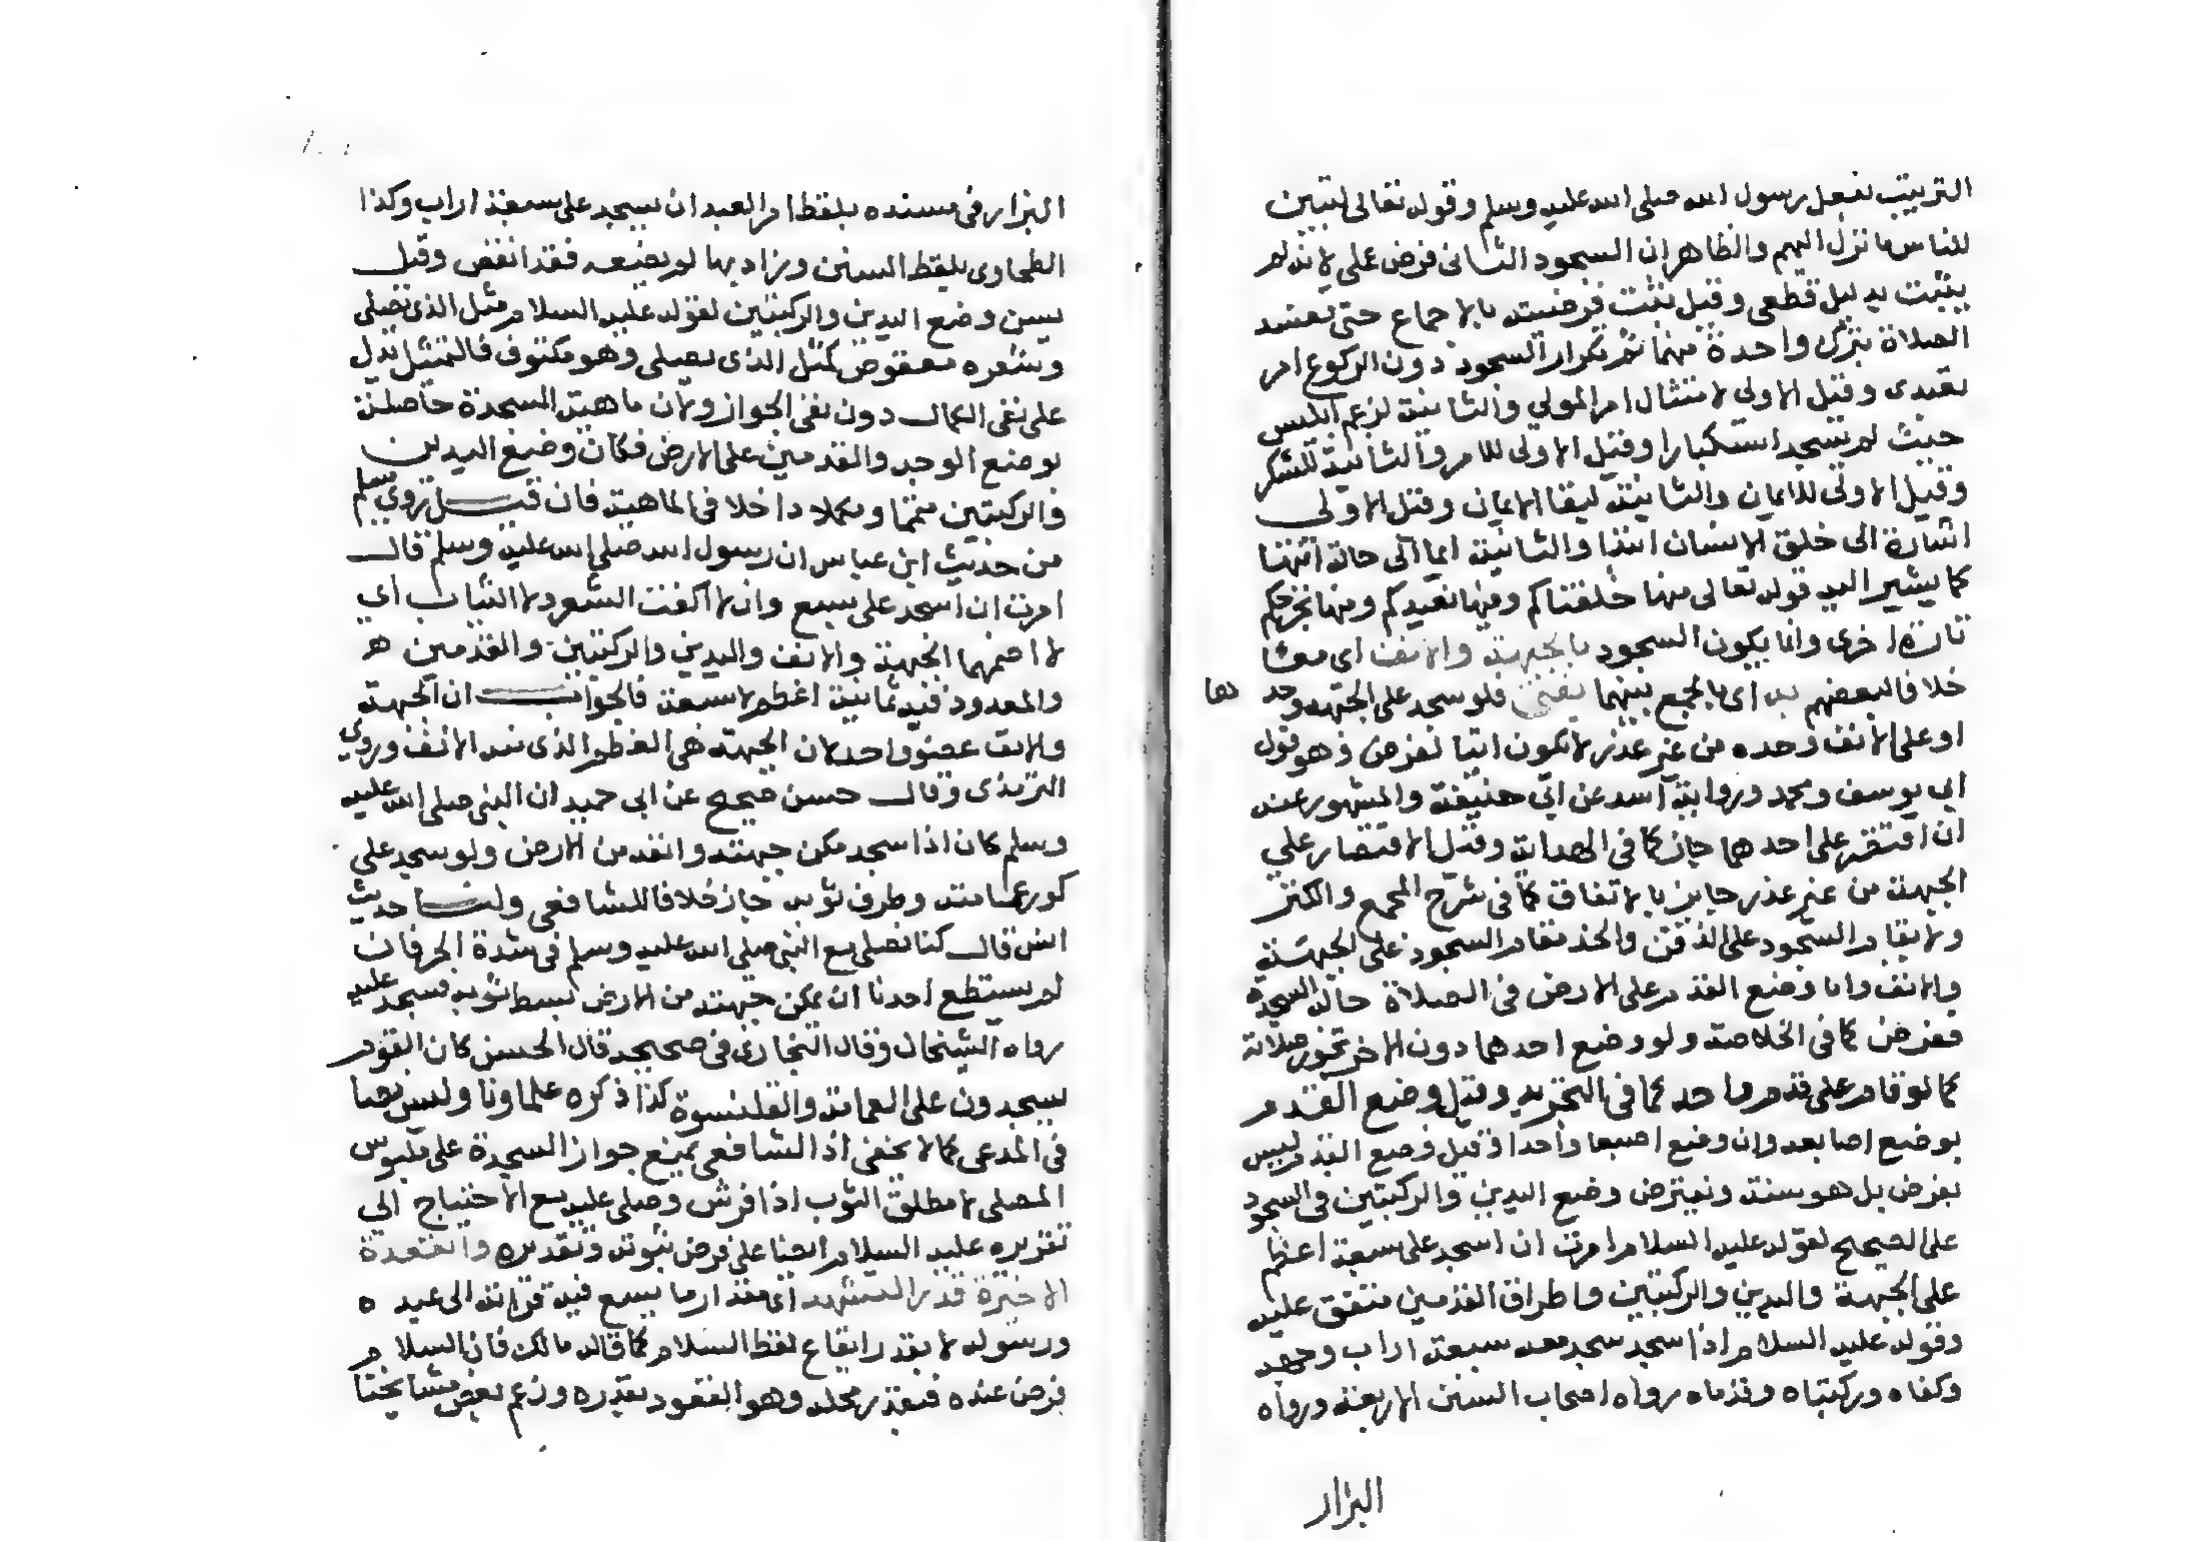 الترتيب بفعل رسول الله صلى الله عليه وسلم وقوله تعالى لتبين
للناس ما نزل اليهم والظاهر ان السجود الثاني فرض عملي لانه لم
يثبت بدليل قطعي وقيل يثبت فرضيته بالاجماع حتى تفسد
الصلاة بترك واحدة منهما ثم تكرار السجود دون الركوع امر
تعبدى وقيل الاولى لامتثال امر المولي والثانية لزعم ابليس
حيث لم يسجد استكبارا وقيل الاولى للامر والثانية للشكر
وقيل الاولى للايمان والثانية لبقا الايمان وقيل الاولى
اشارة الى خلق الانسان ابتدا والثانية ايما الى حالة انتها
كما يشير اليه قوله تعالى منها خلقناكم وفيها نعيدكم ومنها نخرجكم
تارة اخرى وانما يكون السجود بالجبهة والانف اى معا
خلافا لبعضهم به اى بالجمع بينهما يفتى فلو سجد على الجبهة وحدها
او على الانف وحده من غير عذر لا يكون اتيا بفرض وهو قول
ابي يوسف ومحمد ورواية اسد عن ابي حنيفة والمشهور عنه
ان اقتصر على احدهما جاز كما في الهداية وقيل الاقتصار علي
الجبهة من غير عذر جايز بالاتفاق كما في شرح المجمع والكنز
ولا يقام السجود على الذقن والخد مقام السجود على الجبهة
والانف واما وضع القدم على الارض في الصلاة حالة السجدة
ففرض كما في الخلاصة ولو وضع احدهما دون الاخر تجوز صلاته
كما لو قام على قدم واحد كما في التجريد وقيل وضع القدم
بوضع اصابعه وان وضع اصبعا واحدا وقيل وضع القدم ليس
بفرض بل هو سنة ونفترض وضع اليدين والركبتين في السجود
على الصحيح لقوله عليه السلام امرت ان اسجد على سبعة اعظم
على الجبهة واليدين والركبتين واطراف القدمين متفق عليه
وقوله عليه السلام اذا سجد سجد معه سبعة اراب وجهه
وكفاه وركبتاه وقدماه رواه اصحاب السنن الاربعة ورواه
البزار
البزار في مسنده بلفظ امر العبد ان يسجد على سبعة اراب وكذا
الطحاوى بلفظ السنن وزاد بها لم يضعه فقد انقض وقيل
يسن وضع اليدين والركبتين لقوله عليه السلام مثل الذى يصلى
وشعره معقوص كمثل الذى يصلى وهو مكتوف فالتمثل يدل
على نفى الكمال دون نفى الجواز ولان ماهية السجدة حاصلة
بوضع الوجه والقدمين على الارض فكان وضع اليدين
والركبتين متمما ومكملا داخلا في الماهية فان قيل روي مسلم
من حديث ابن عباس ان رسول الله صلى الله عليه وسلم قال
امرت ان اسجد على سبع وان لا اكفت الشعر ولا الثياب اي
لا اضمهما الجبهة والانف واليدين والركبتين والقدمين ه
والمعدود فيه ثمانية اعظم لا سبعة فالجواب ان الجبهة
والانف عضو واحد لان الجبهة هى العظم الذى منه الانف وروي
الترمذى وقال حسن صحيح عن ابى حميد ان النبى صلى الله عليه
وسلم كان اذا سجد مكن جبهته وانفه من الارض ولو سجد على
كور عمامته وطرف ثوبه جاز خلافا للشافعي ولنا حديث
انس قال كنا نصلى مع النبى صلى الله عليه وسلم في شدة الحر فان
لم يستطع احدنا ان يمكن جبهته من الارض بسط ثوبه فسجد عليه
رواه الشيخان وقال البخارى في صحيحه قال الحسن كان القوم
يسجدون على العمامة والقلنسوة كذا ذكره علماونا وليس نصا
في المدعى كما لا يخفى اذ الشافعى يمنع جواز السجدة على ملبوس
المصلى لا مطلق الثوب اذا فرش وصلى عليه مع الاحتياج الي
تقريره عليه السلام ايضا على فرض ثبوته وتقديره والقعدة
الاخيرة قدر التشهد اى مقدار ما يسع فيه قراته الى عبده
ورسوله لا بقدر ايقاع لفظ السلام كما قاله مالك فان السلام
فرض عنده فيقدر محله وهو القعود بقدره وزعم بعض مشايخنا